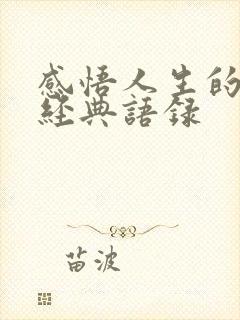 感悟人生的
經典語録
苗波